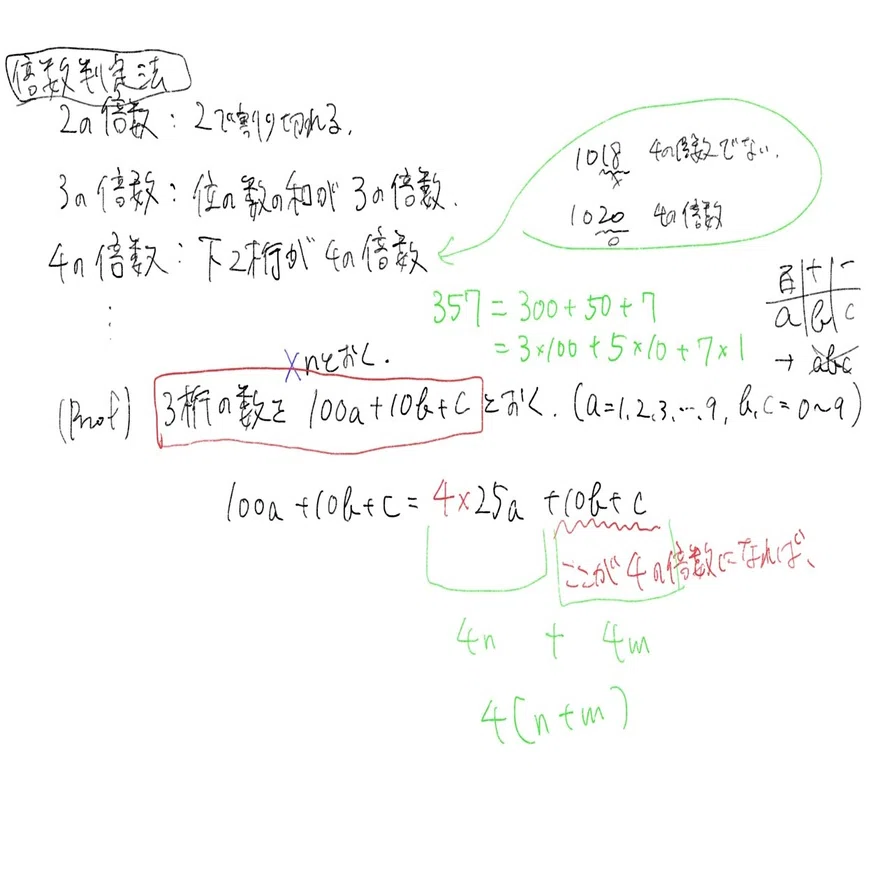 倍数判定法
2の倍数：2で割り切れる.
3の倍数：位の数の和が3の倍数.
4の倍数：下2桁が4の倍数
⋮
1018 4の倍数でない.
×
1020 4の倍数
○
357 = 300 + 50 + 7
= 3×100 + 5×10 + 7×1
百|十|一
a|b|c
→ abc
×nとおく.
(Proof) 3桁の数を 100a+10b+c とおく. (a=1,2,3,…,9, b,c=0~9)
100a+10b+c = 4×25a +10b+c
ここが4の倍数になれば、
4n + 4m
4(n+m)